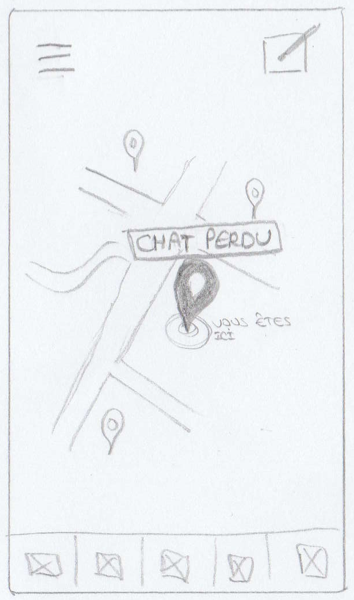 CHAT PERDU
VOUS ÊTES
ICI